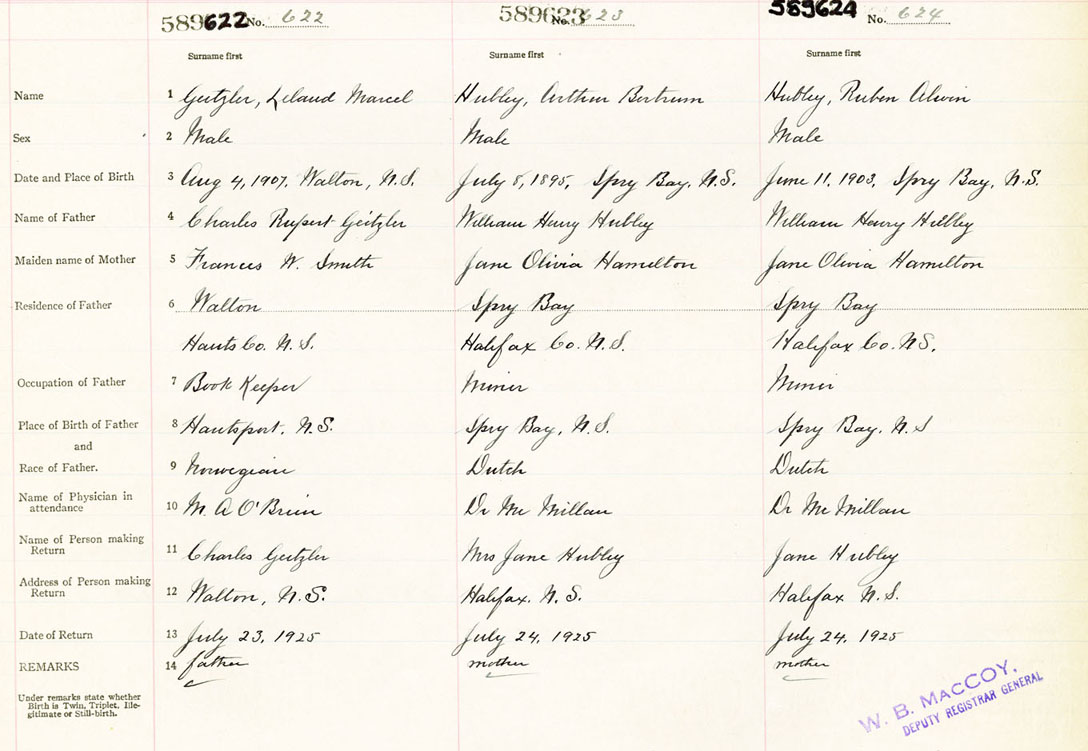 589622 No. 622 589623 No. 623 589624 No. 624
Surname first Surname first Surname first
Name 1 Geitzler, Leland Marcel Hubley, Arthur Bertrum Hubley, Ruben Alwin
Sex 2 Male Male Male
Date and Place of Birth 3 Aug 4, 1907. Walton, N.S. July 8, 1895, Spry Bay, N.S. June 11, 1903, Spry Bay, N.S.
Name of Father 4 Charles Rupert Geitzler William Henry Hubley William Henry Hubley
Maiden name of Mother 5 Frances W. Smith Jane Olivia Hamelton Jane Olivia Hamelton
Residence of Father 6 Walton Spry Bay Spry Bay
Hants Co. N.S. Halifax Co. N.S. Halifax Co. N.S.
Occupation of Father 7 Book Keeper Miner Miner
Place of Birth of Father 8 Hantsport, N.S. Spry Bay, N.S. Spry Bay, N.S
and
Race of Father. 9 Norwegian Dutch Dutch
Name of Physician in
attendance 10 M. A O'Brien Dr Mc Millan Dr Mc Millan
Name of Person making
Return 11 Charles Geitzler Mrs Jane Hubley Jane Hubley
Address of Person making
Return 12 Walton, N.S. Halifax, N.S. Halifax N.S.
Date of Return 13 July 23, 1925 July 24, 1925 July 24, 1925
REMARKS 14 father mother mother
Under remarks state whether
Birth is Twin, Triplet, Ille-
gitimate or Still-birth.
W. B. MACCOY,
DEPUTY REGISTRAR GENERAL